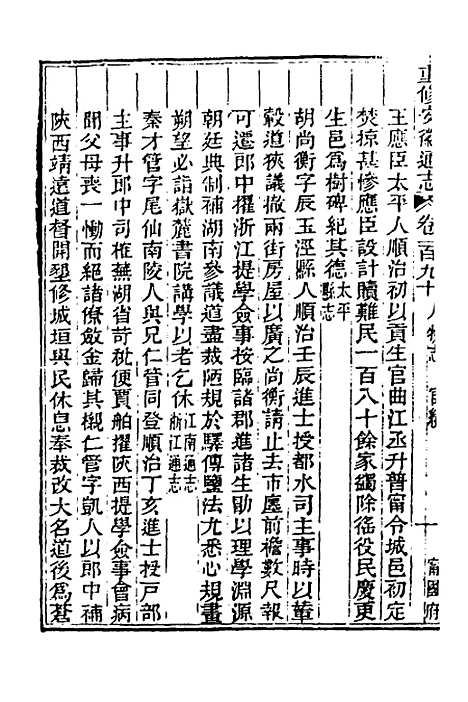 重修安徽通志 卷一百九十 人物志 宦績 十一 甯國府
王應臣太平人順治初以貢生官曲江丞升普甯令城邑初定
焚掠甚慘應臣設計贖難民一百八十餘家蠲除徭役民慶更
生邑爲樹碑紀其德太平縣志
胡尚衡字辰玉涇縣人順治壬辰進士授都水司主事時以輦
轂道狹議撤兩街房屋以廣之尚衡請止去市廛前檐數尺報
可遷郎中擢浙江提學僉事按臨諸郡進諸生勖以理學淵源
朝廷典制補湖南參議道盡裁陋規於驛傳鹽法尤悉心規畫
朔望必詣嶽麓書院講學以老乞休江南通志浙江通志
秦才管字尾仙南陵人與兄仁管同登順治丁亥進士授戶部
主事升郎中司榷蕪湖省苛秕便賈舶擢陝西提學僉事會病
聞父母喪一慟而絕諸僚斂金歸其櫬仁管字凱人以郎中補
陝西靖遠道督開墾修城垣與民休息奉裁改大名道後爲蒼